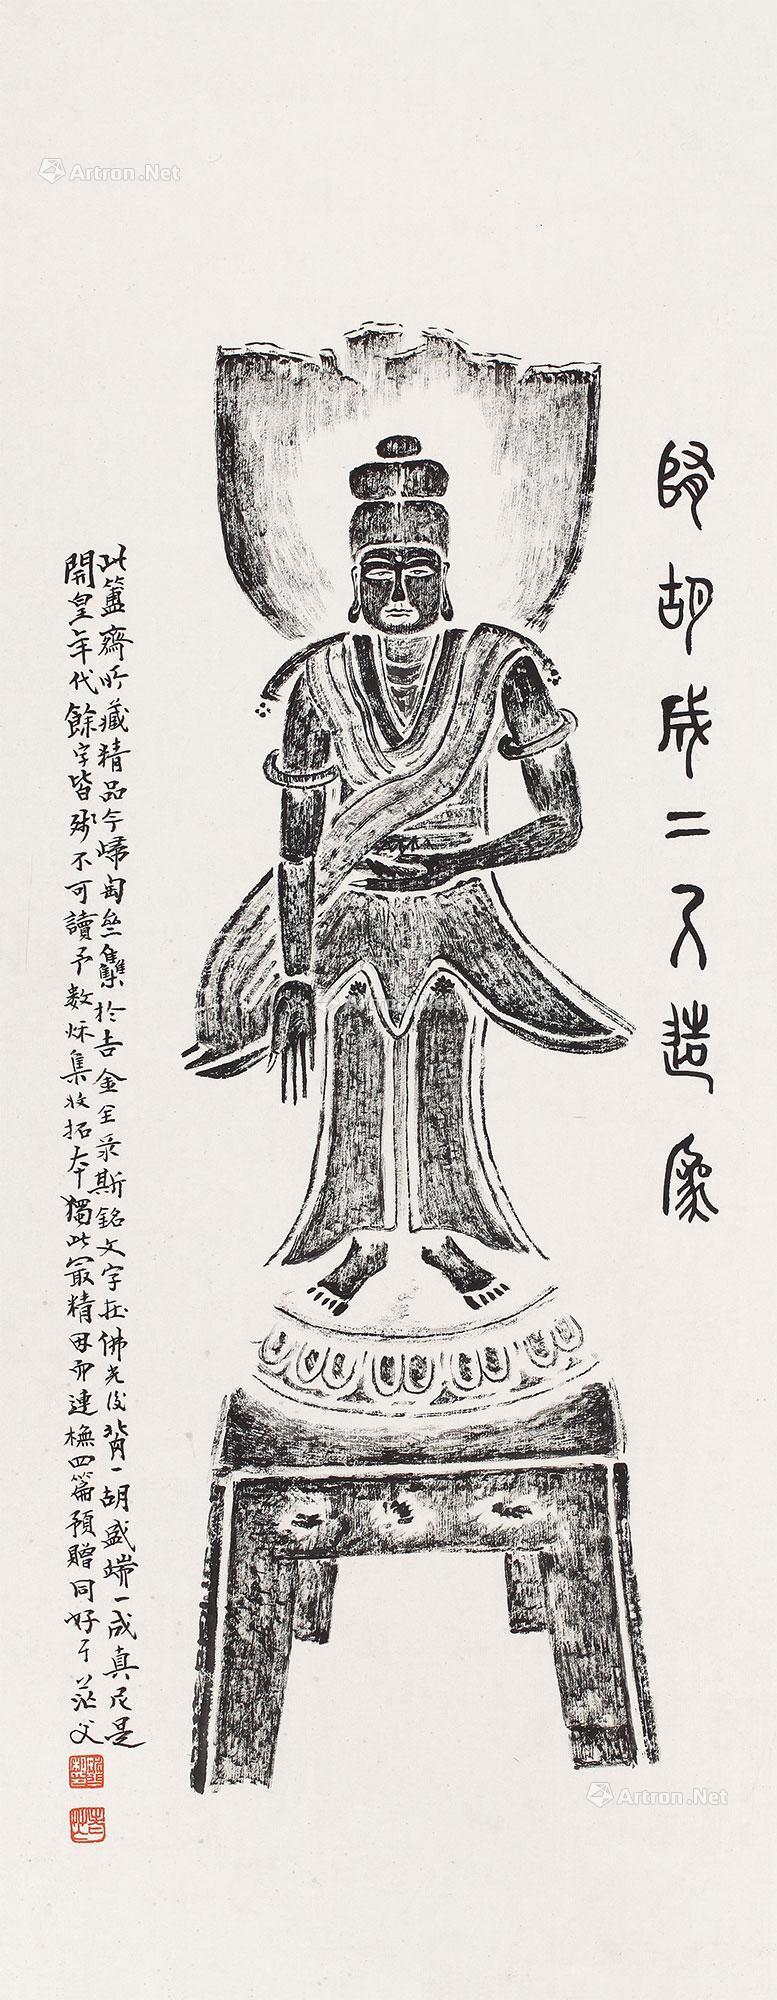 隋胡成二人造像
此簠齋所藏精品今歸匋㙜集於吉金全录斯銘文字在佛光後背一胡盛端一成真尼是
開皇年代餘字皆漶不可讀予數年集收拓本獨此最精因而連橅四篇預贈同好了茫父
Artron.Net
Artron.Net